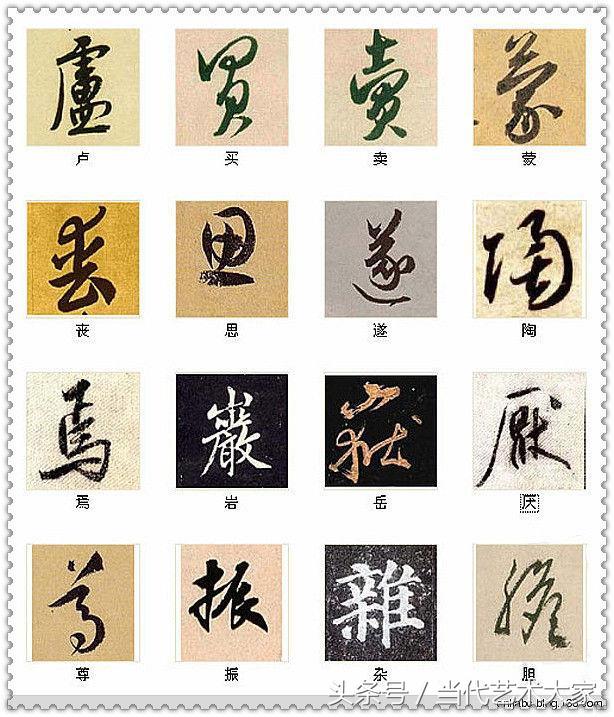 盧 買 賣 蒙
卢 买 卖 蒙
丧 思 遂 陶
丧 思 遂 陶
焉 巖 嶽 厭
焉 岩 岳 厌
尊 振 雜 膽
尊 振 杂 胆
头条号 / 当代艺术大家